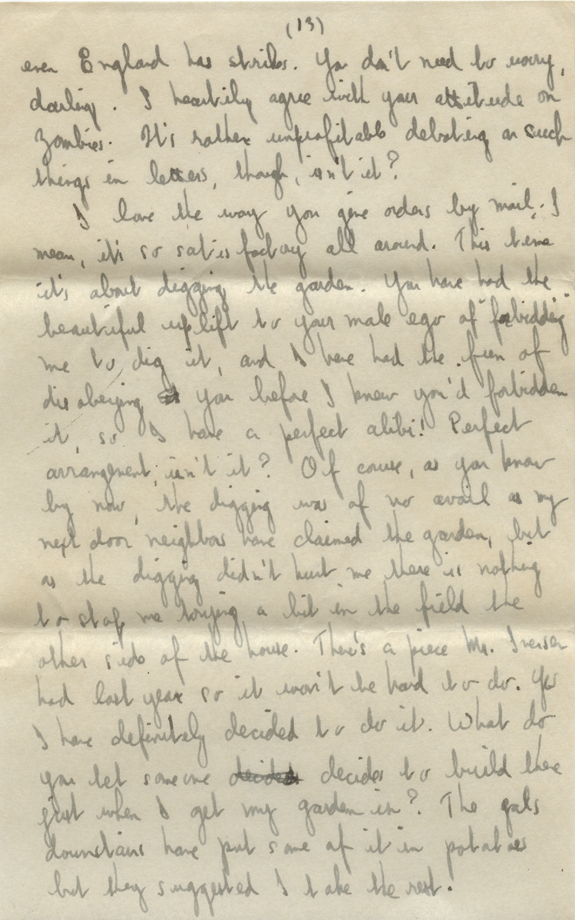 (13)
even England has strikes. You don't need to worry,
darling. I heartily agree with your attitude on
Zombies. It's rather unprofitable debating on such
things in letters, though, isn't it?
I love the way you give orders by mail. I
mean, it's so satisfactory all around. This time
it's about digging the garden. You have had the
beautiful uplift to your male ego of "forbidding"
me to dig it, and I have had the fun of
disobeying you before I knew you'd forbidden
it, so I have a perfect alibi! Perfect
arrangement, isn't it? Of course, as you know
by now, the digging was of no avail as my
next door neighbors have claimed the garden, but
as the digging didn't hurt me there is nothing
to stop me trying a bit in the field the
other side of the house. There's a piece Mr.
had last year so it won't be hard to do. Yes
I have definitely decided to do it. What do
you bet someone decides to build there
just when I get my garden in? The gals
downstairs have put some of it in potatoes
but they suggested I take the rest.